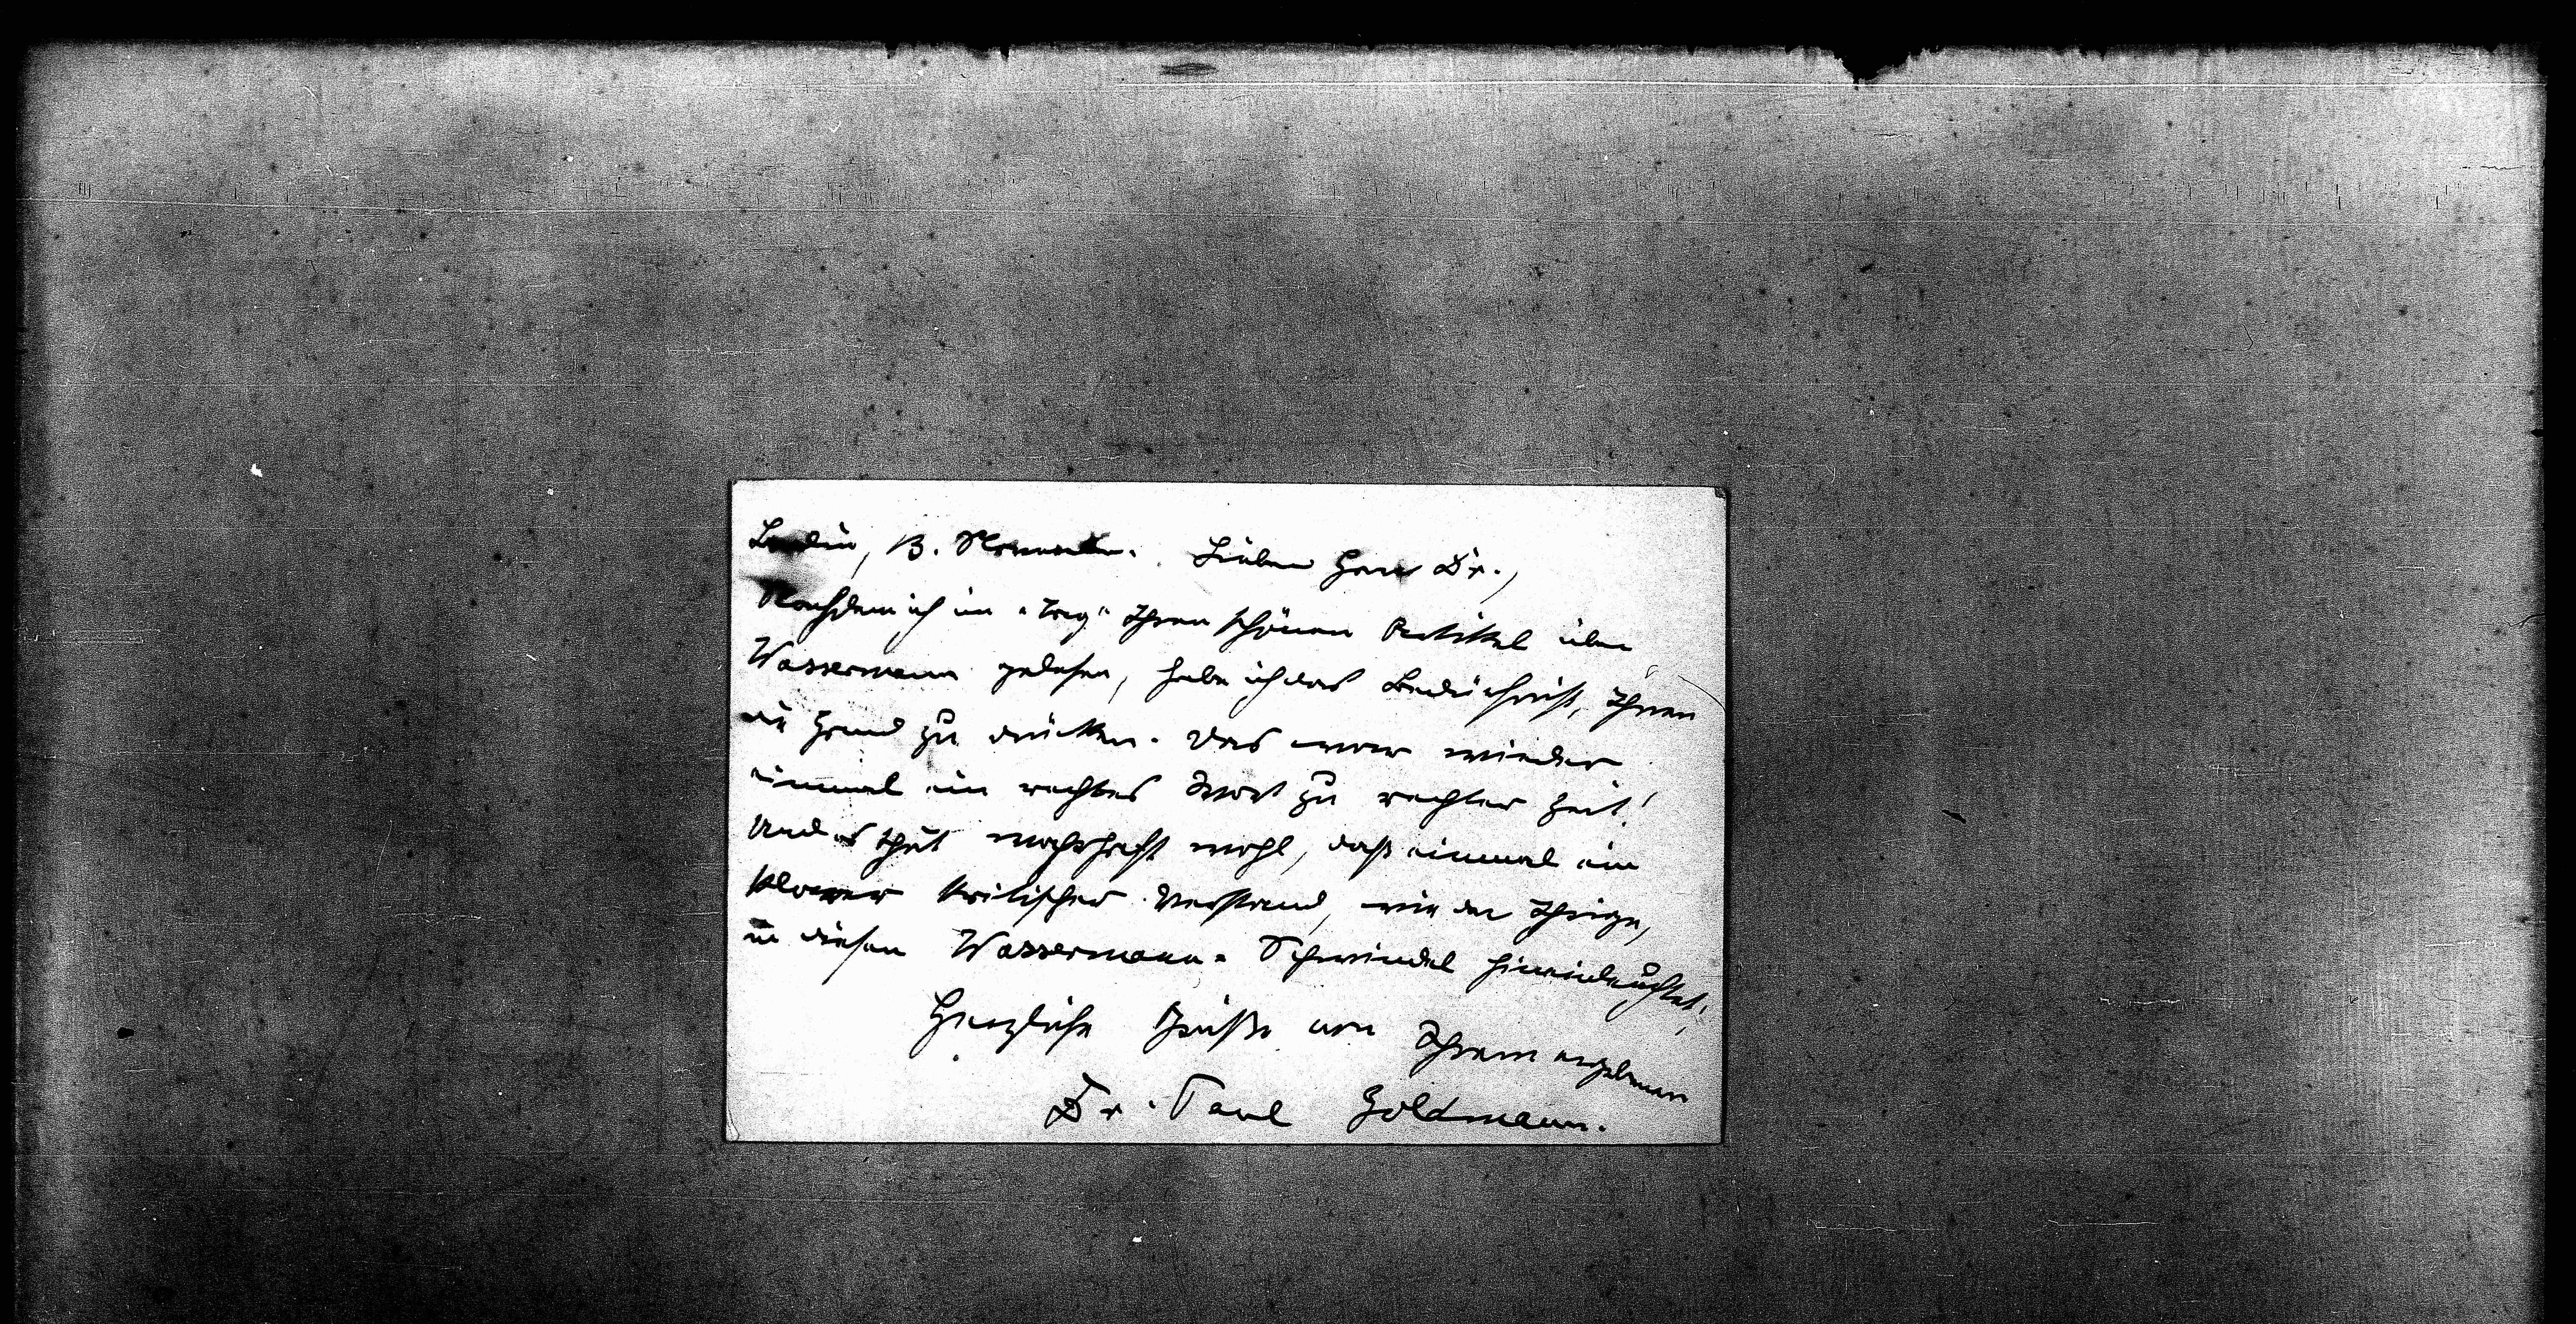 Berlin, 13. November. Lieber Herr Dr.,
Nachdem ich im „Tag“ Ihren schönen Artikel über
Wassermann gelesen, habe ich das Bedürfniß, Ihnen
die Hand zu drücken. Das war wieder
einmal ein rechtes Wort zu rechter Zeit!
Und es thut wahrhaft wohl, daß einmal ein
klarer kritischer Verstand, wie der Ihrige,
in diesen Wassermann-Schwindel hineinleuchtet!
Herzliche Grüße von Ihrem ergebenen
Dr. Paul Goldmann.